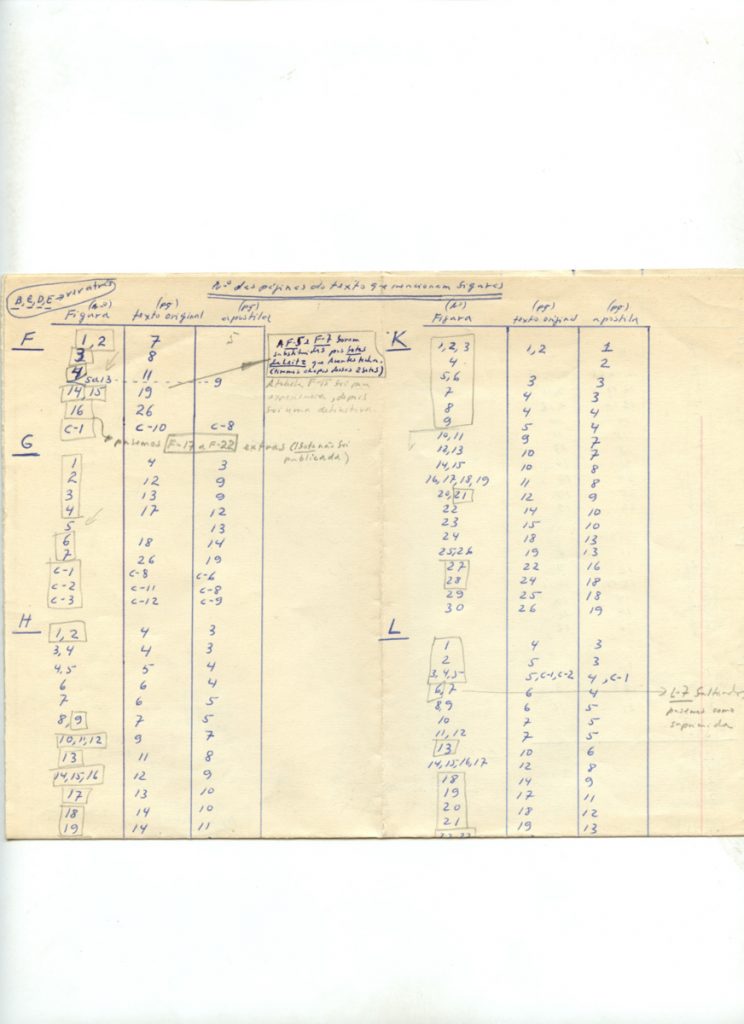 B, C, D, E → ver atrás
N.º das páginas do texto que mencionam figuras
(N.º) (pg) (pg)
Figura texto original apostila
F
1, 2 7 5
3 8
4 11
5 a 13 9
14, 15 19
16 26
C-1 C-10 C-8
A F-5 e F-7 foram
substituídas por fotos
da Leitz que
A tabela F-15 foi para
depois
foi uma definitiva
pusemos F-17 a F-22 extras (Isto não foi
publicada)
G
1 4 3
2 12 9
3 13 9
4 17 12
5 13
6 18 14
7 26 19
C-1 C-8 C-6
C-2 C-11 C-8
C-3 C-12 C-9
H
1, 2 4 3
3, 4 4 3
4, 5 5 4
6 6 4
7 6 5
8, 9 7 5
10, 11, 12 9 7
13 11 8
14, 15, 16 12 9
17 13 10
18 14 10
19 14 11
(N.º) (pg) (pg)
Figura texto original apostila
K
1, 2, 3 1, 2 1
4 2
5, 6 3 3
7 4 3
8 4 4
9 5 4
10, 11 9 7
12, 13 10 7
14, 15 10 8
16, 17, 18, 19 11 8
20, 21 12 9
22 14 10
23 15 10
24 18 13
25, 26 19 13
27 22 16
28 24 18
29 25 18
30 26 19
L
1 4 3
2 5 3
3, 4, 5 5, C-1, C-2 4, C-1
6, 7 6 4
8, 9 6 5
10 7 5
11, 12 7 5
13 10 6
14, 15, 16, 17 12 8
18 14 9
19 17 11
20 18 12
21 19 13
→ L-7
pusemos como
suprimida